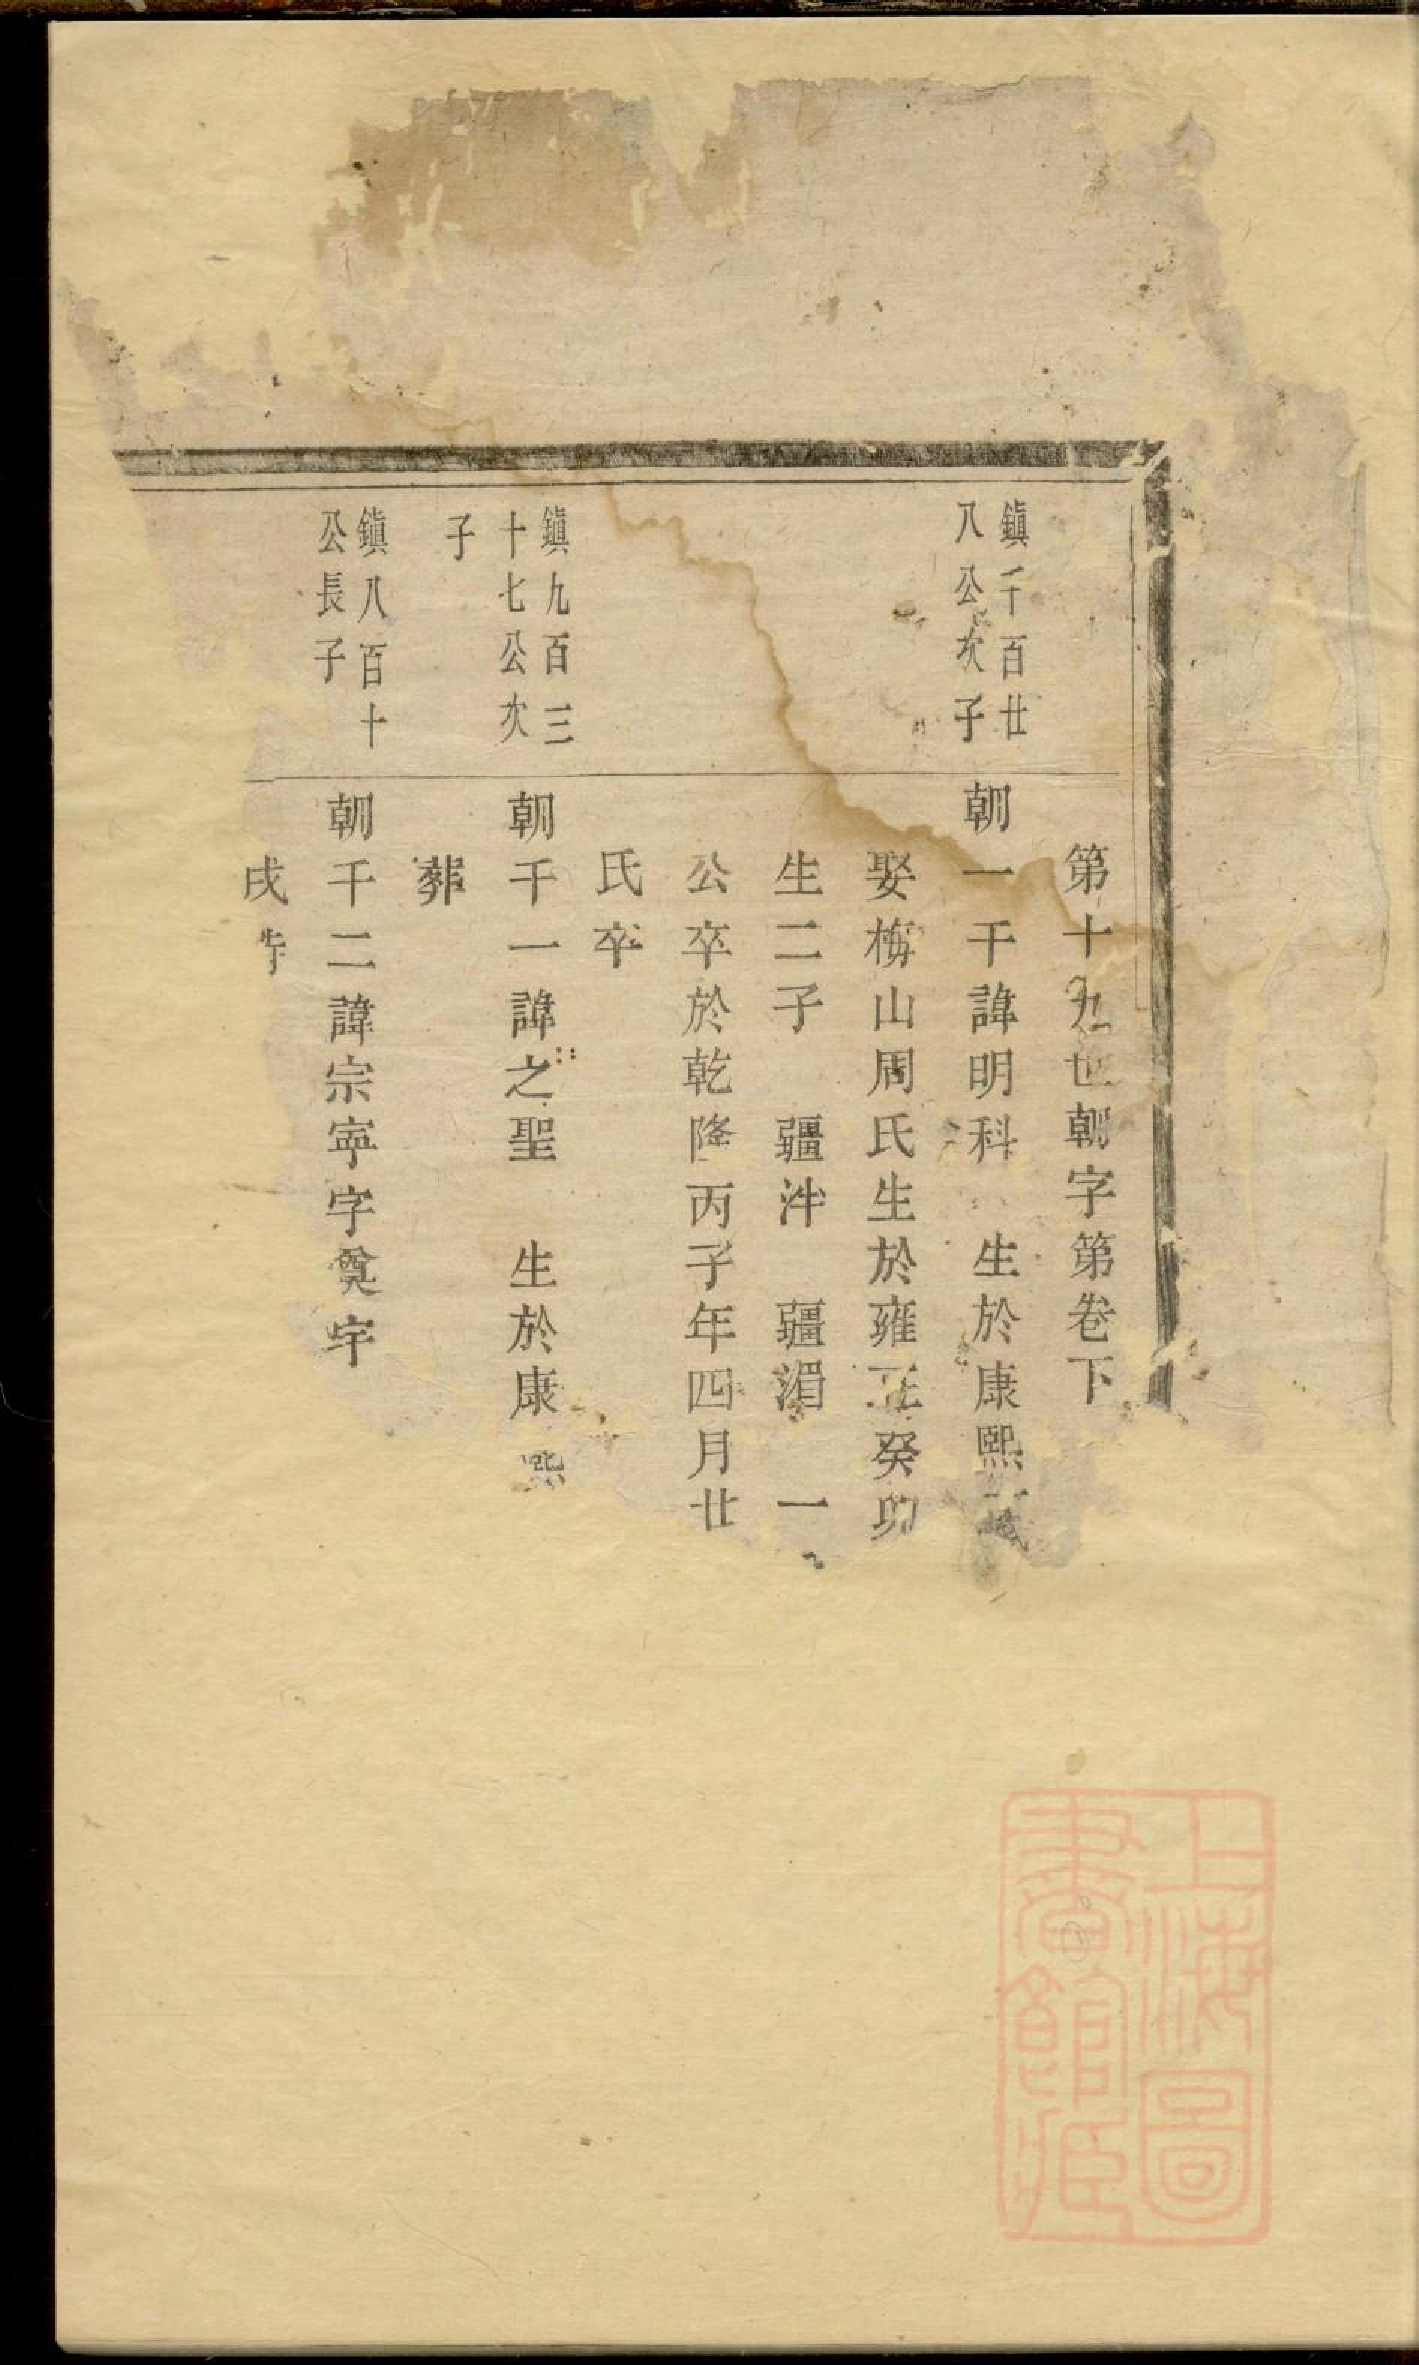 第十九世朝字第卷下
鎮千百廿
八公次子
朝一千諱明科 生於康熙
娶梅山周氏生於雍正癸卯
生二子 疆泮 疆湄 一
公卒於乾隆丙子年四月廿
氏卒
鎮九百三
十七公次
子
朝千一諱之聖 生於康熙
葬
鎮八百十
公長子
朝千二諱宗寧字奠宇
戌
上海圖
書館藏